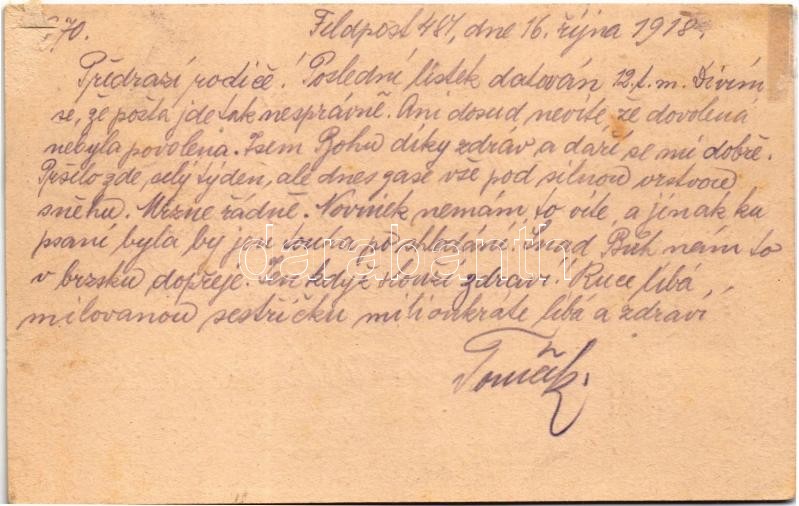 70. Feldpost 481, dne 16. října 1918.
Předrazí rodiče! Poslední lístek datován 12. t. m. Divím
se, že pošta jde tak nesprávně. Ani dosud nevíte že dovolená
nebyla povolena. Jsem Bohu díky zdráv a daří se mi dobře.
Pršelo zde celý týden, ale dnes zase vše pod silnou vrstvou
sněhu. Mrzne řádně. Novinek nemám to víte, a jinak ku
psaní byla by jen touha po shledání. Snad Bůh nám to
v brzsku dopřeje. Jen když slouží zdraví. Ruce líbá
milovanou sestřičku milionkráte líbá a zdraví
darabanth